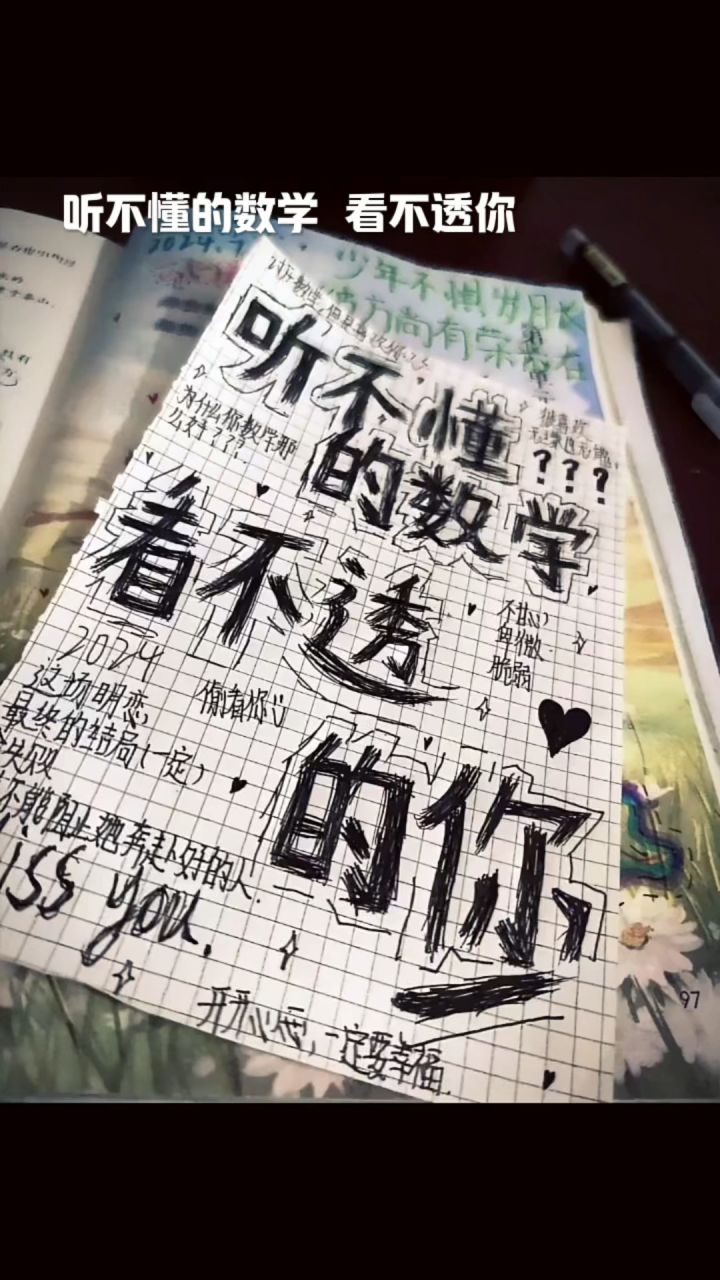 听不懂的数学 看不透你
2024.7
少年不惧岁月长
彼方尚有荣光在
听不懂
的数学
???
为什么你数学那
么好???
看不透
不甘心
卑微
脆弱
2024
偷着你
这场明恋
最终的结局(一定)
失败
不能阻止她奔赴更好的人.
iss you.
的你
开开心心,一定要幸福.
97